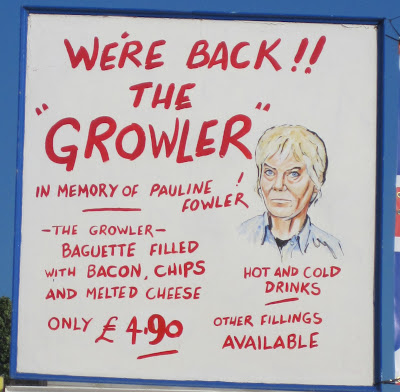 WE'RE BACK!!
THE
"GROWLER"
IN MEMORY OF PAULINE
FOWLER!
-THE GROWLER-
BAGUETTE FILLED
WITH BACON, CHIPS
AND MELTED CHEESE
ONLY £4.90
HOT AND COLD
DRINKS
OTHER FILLINGS
AVAILABLE